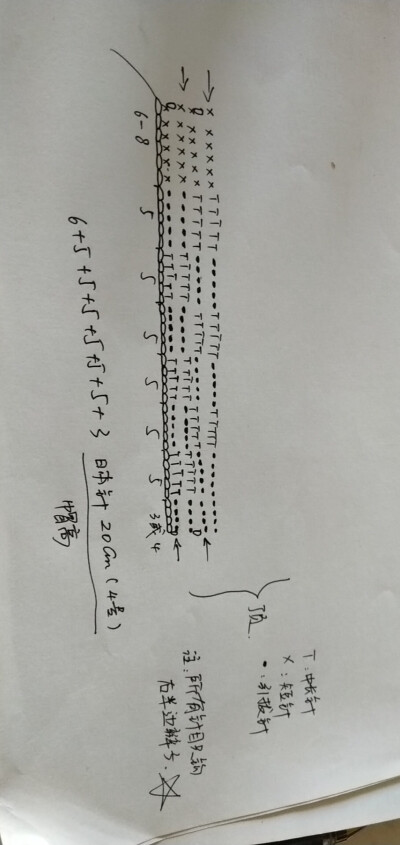 6-8 5 5 5 5 5 5 3或4
6+5+5+5+5+5+5+3 日本针 20cm (4号)
帽高
顶
T:中长针
X:短针
•:引拔针
注:所有针目只钩
右半边辫子.